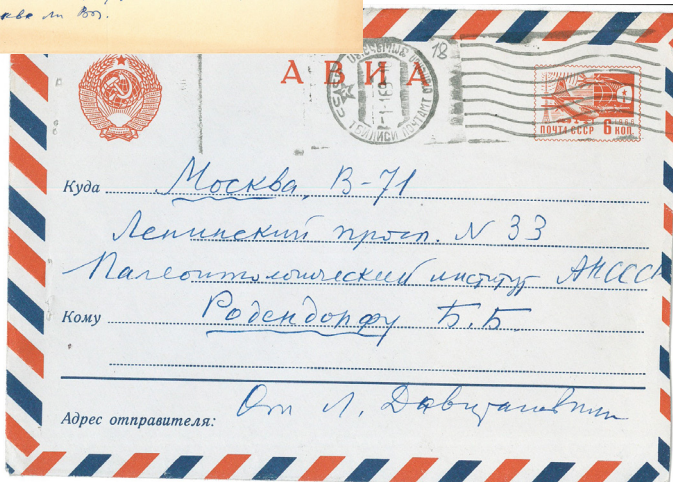 ли Вы.
АВИА
18
СССР
ТБИЛИСИ ПОЧТАМТ
ПОЧТА СССР 6 КОП
1966
Куда Москва, В-71
Ленинский просп. N 33
Палеонтологический институт АН СССР
Кому Родендорфу Б.Б.
Адрес отправителя: От Л.